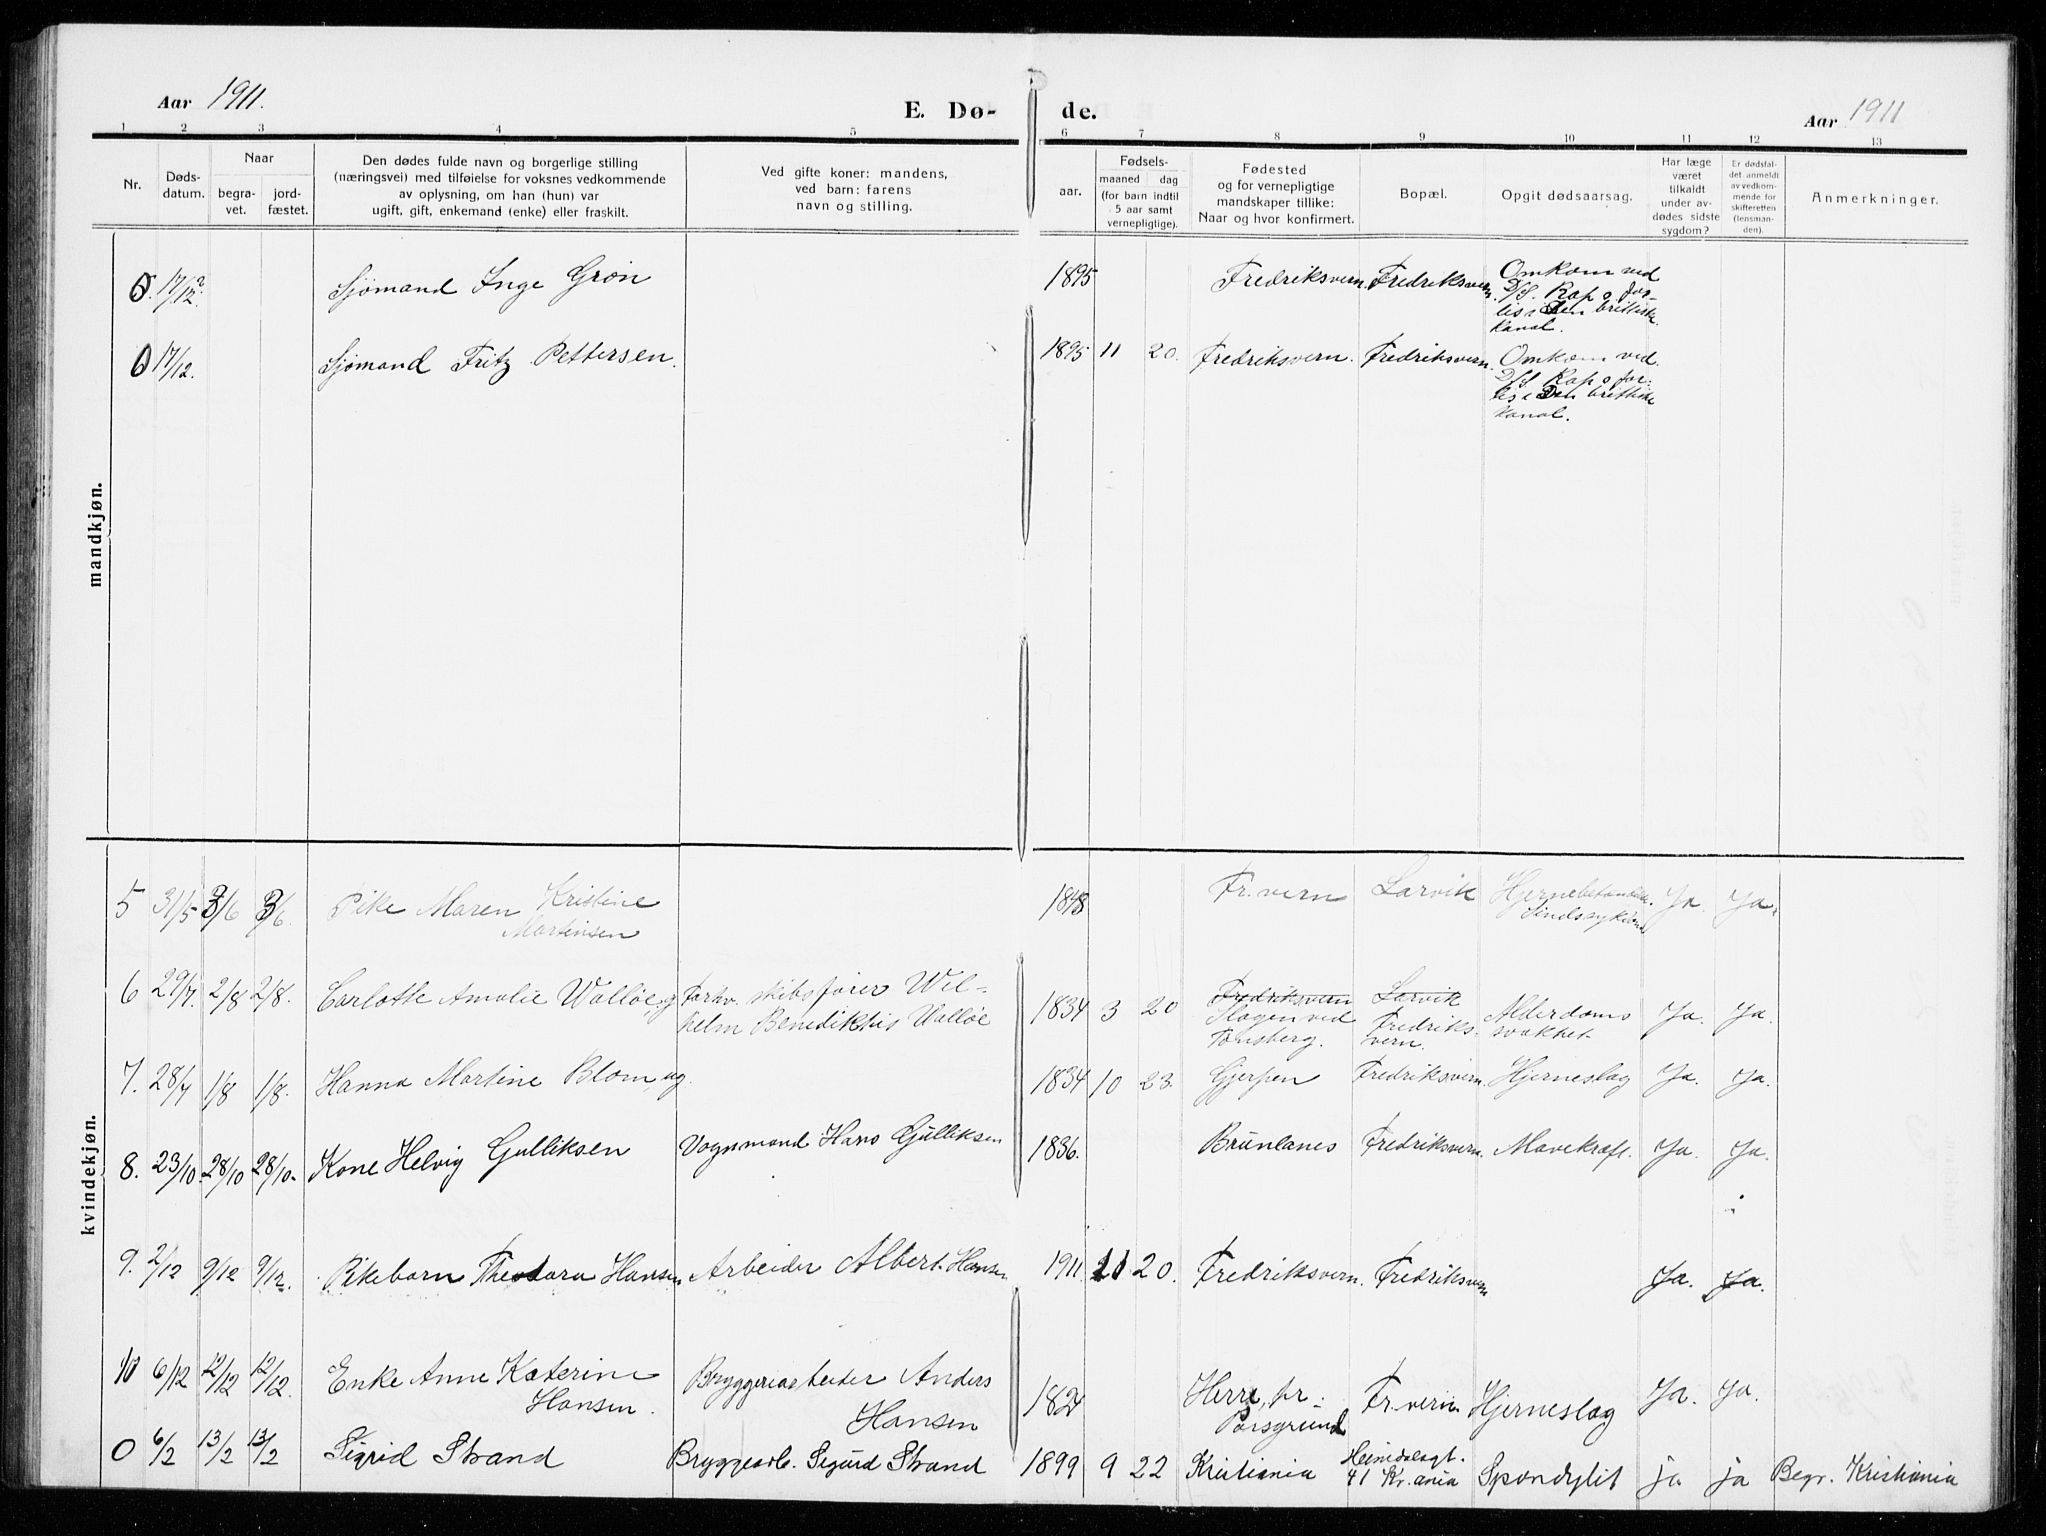 Aar 1911. E. Dø- de. Aar 1911
1 2 3 4 5 6 7 8 9 10 11 12 13
Nr. Døds-datum. Naar begra-vet. jord-fæstet. Den dødes fulde navn og borgerlige stilling (næringsvei) med tilføielse for voksnes vedkommende av oplysning, om han (hun) var ugift, gift, enkemand (enke) eller fraskilt. Ved gifte koner: mandens, ved barn: farens navn og stilling. aar. Fødsels- maaned dag (for barn indtil 5 aar samt vernepligtige). Fødested og for vernepligtige mandskaper tillike: Naar og hvor konfirmert. Bopæl. Opgit dødsaarsag. Har læge været tilkaldt under av-dødes sidste sygdom? Er dødsfal-det anmeldt av vedkom-mende for skifteretten (lensman-den). Anmerkninger.
mandkjøn.
0. 17/12? Sjømand Inge Grøn 1895 Fredriksvern. Fredriksvern. Omkom ved
D/S. Rap s for-
lis i Den britiske
kanal.
0 17/12. Sjømand Fritz Pettersen. 1895 11 20. Fredriksvern. Fredriksvern. Omkom ved
D/S. Rap s for-
lis i Den britiske
kanal.
kvindekjøn.
5 31/5 3/6 3/6. Pike Maren Kristine 1848 Fr.vern Larvik Ja. Ja.
Martinsen
6 29/7. 2/8 2/8. Carlotte Amalie Walløe, g Forhv. skibsfører Wil- 1834 3 20 Fredriksvern Larvik Alderdoms Ja. Ja.
helm Benediktus Walløe Slagen ved Fredriks- svakhet
Tønsberg. vern.
7. 28/7 1/8 1/8. Hanna Martine Blom, ug. 1834 10 23. Gjerpen Fredriksvern. Hjerneslag Ja. Ja.
8. 23/10. 28/10 28/10. Kone Helvig Gulliksen Vognmand Hans Gulliksen 1836. Brunlanes Fredriksvern. Mavekræft. Ja. Ja.
9. 2/12 9/12 9/12. Pikebarn Theodora Hansen Arbeider Albert Hansen 1911. 11 20. Fredriksvern. Fredriksvern Ja. Ja.
10 6/12 12/12 12/12. Enke Anne Katerine Bryggeriarbeider Anders 1824 Herre, pr. Fr.vern Hjerneslag Ja. Ja.
Hansen. Hansen Porsgrund
0 6/2 13/2 13/2 Sigrid Strand Bryggearb. Sigurd Strand 1899 9 22 Kristiania Heimdalsgt. Spondylit ja ja Begr. Kristiania
41 Kr.ania